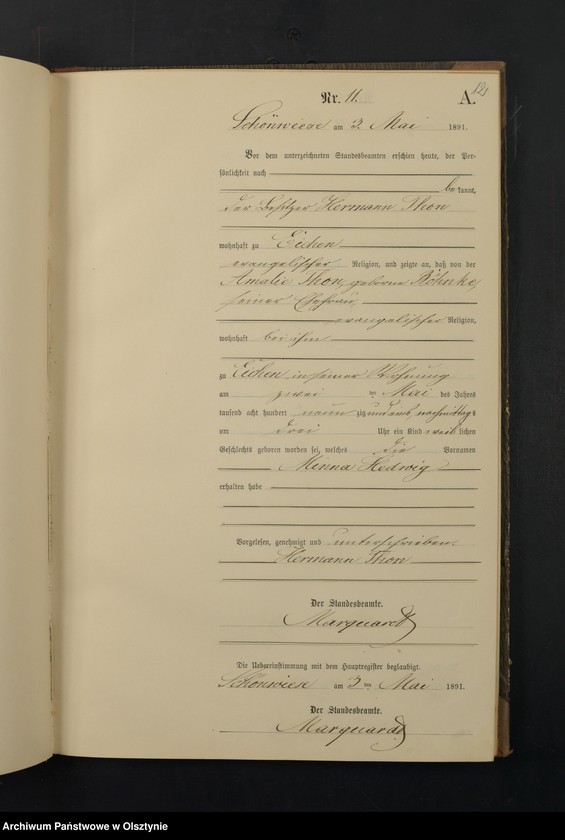 Nr. 11.
A.
12
Schönwiese am 3. Mai 1891.
Vor dem unterzeichneten Standesbeamten erschien heute, der Per-
sönlichkeit nach
be kannt,
der Besitzer Hermann Thon
wohnhaft zu Eichen
evangelischer Religion, und zeigte an, daß von der
Amalie Thon, geborne Böhnke,
seiner Ehefrau,
evangelischer Religion,
wohnhaft bei ihm
zu Eichen in seiner Wohnung
am zwei ten Mai des Jahres
tausend acht hundert neun zig und eins nachmittags
um drei Uhr ein Kind weib lichen
Geschlechts geboren worden sei, welches die Vornamen
Minna Hedwig
erhalten habe
Vorgelesen, genehmigt und unterschrieben.
Hermann Thon
Der Standesbeamte.
Marquardt
Die Uebereinstimmung mit dem Hauptregister beglaubigt.
Schönwiese am 3 ten Mai 1891.
Der Standesbeamte.
Marquardt
Archiwum Państwowe w Olsztynie